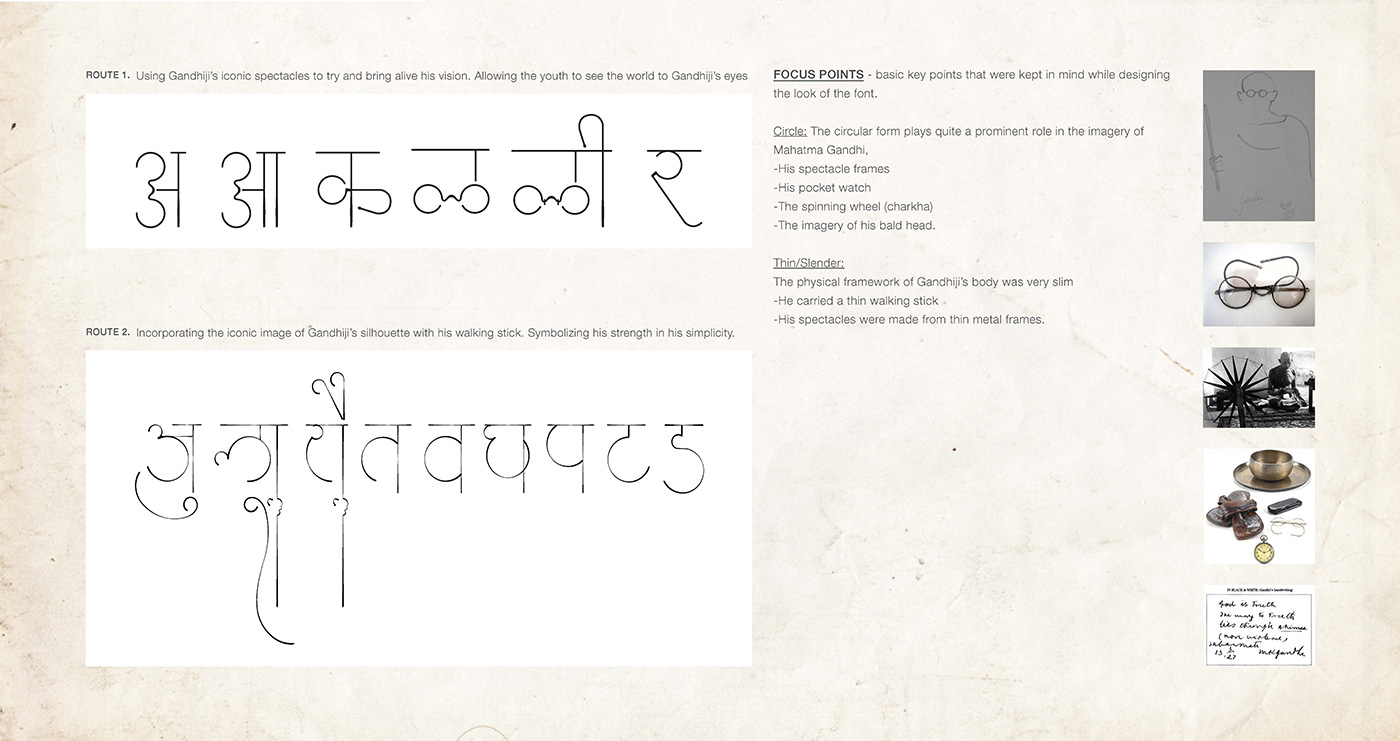 ROUTE 1. Using Gandhiji's iconic spectacles to try and bring alive his vision. Allowing the youth to see the world to Gandhiji's eyes
अ आ क ळ ळी र
ROUTE 2. Incorporating the iconic image of Gandhiji's silhouette with his walking stick. Symbolizing his strength in his simplicity.
त व घ प ट ड
FOCUS POINTS - basic key points that were kept in mind while designing
the look of the font.
Circle: The circular form plays quite a prominent role in the imagery of
Mahatma Gandhi,
-His spectacle frames
-His pocket watch
-The spinning wheel (charkha)
-The imagery of his bald head.
Thin/Slender:
The physical framework of Gandhiji's body was very slim
-He carried a thin walking stick
-His spectacles were made from thin metal frames.
BLACK & WHITE: Gandhi's handwriting
God is Truth
The way to Truth
lies through ahimsa
(non violence)
Sabarmati
13 3 27 MKGandhi